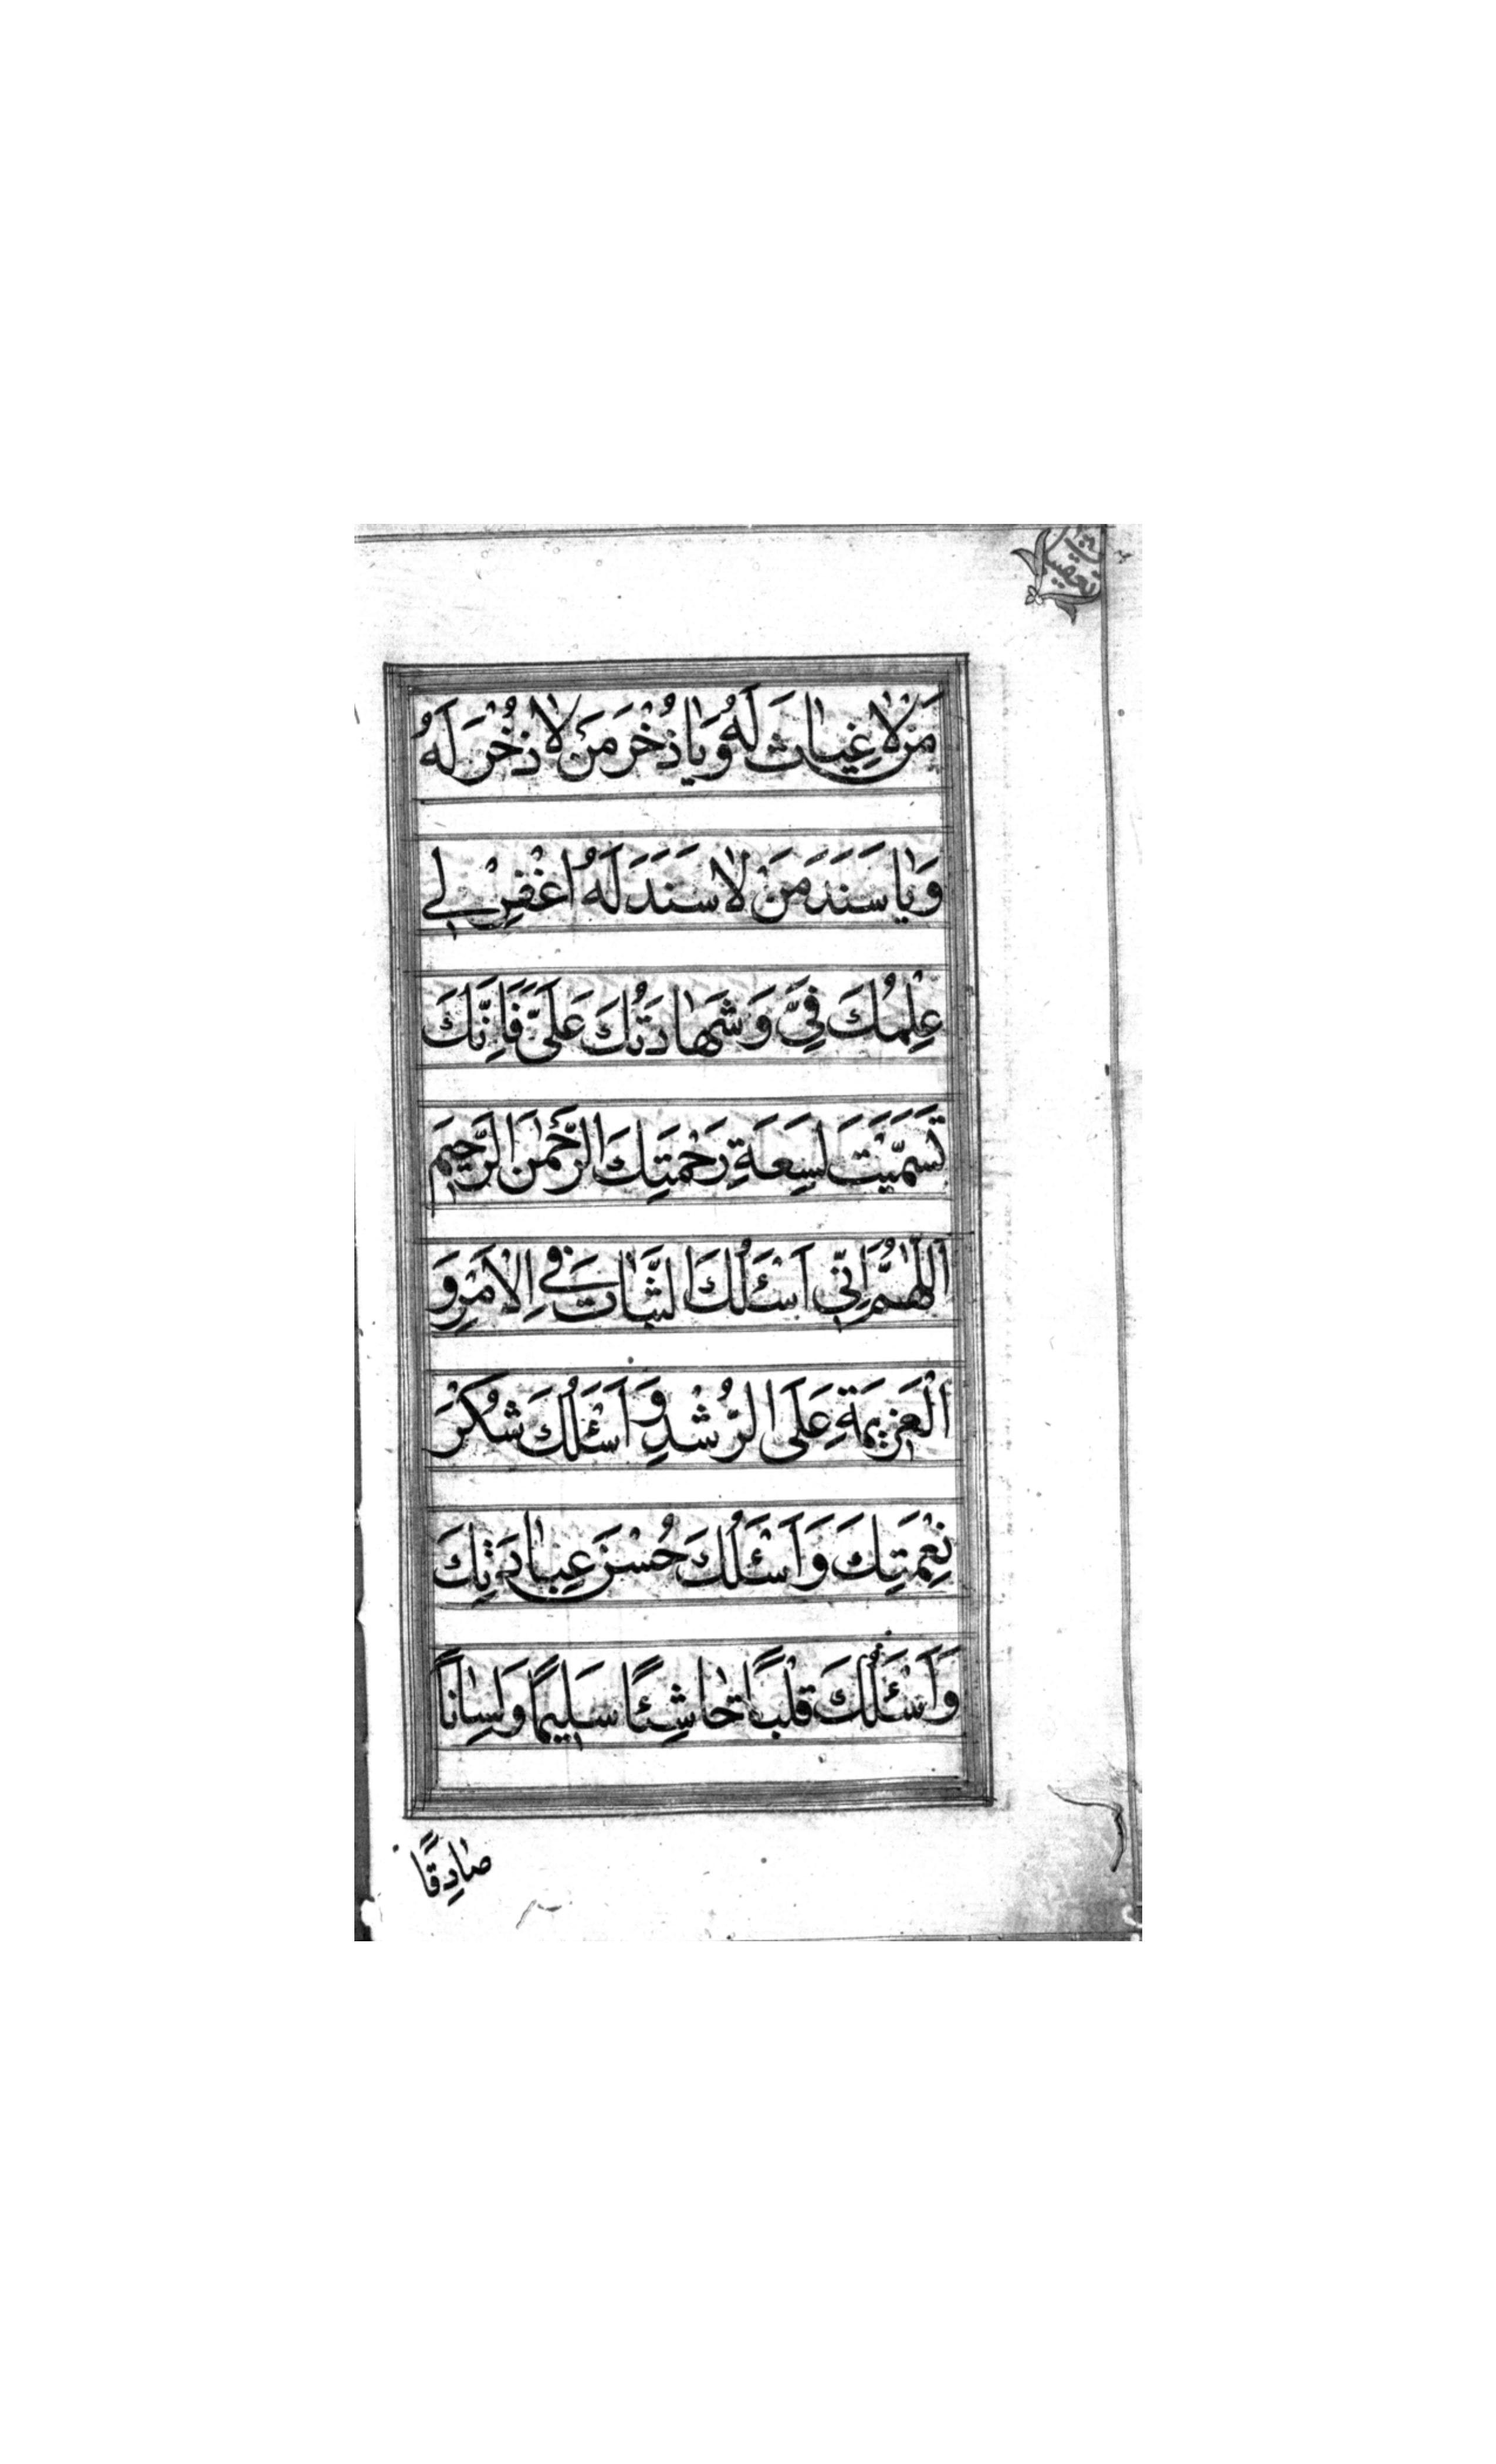 تعقیبات
مَنْ لَا غِیٰاثَ لَهُ وَیٰا ذُخْرَ مَنْ لٰا ذُخْرَ لَهُ
وَیٰا سَنَدَ مَنْ لٰا سَنَدَ لَهُ اغْفِرْ لِی
عِلْمُكَ فِیَّ وَشَهٰادَتُكَ عَلَیَّ فَاِنَّكَ
تَسَمَّیْتَ لِسِعَةِ رَحْمَتِكَ الرَّحْمٰنَ الرَّحِیمَ
اَللّٰهُمَّ اِنّی اَسْئَلُكَ الثَّبٰاتَ فِی الْاَمْرِ وَ
الْعَزِیمَةِ عَلَی الرُّشْدِ وَ اَسْئَلُكَ شُكْرَ
نِعْمَتِكَ وَ اَسْئَلُكَ حُسْنَ عِبٰادَتِكَ
وَ اَسْئَلُكَ قَلْبًا خٰاشِئًا سَلِیمًا وَ لِسٰانًا
صٰادِقًا